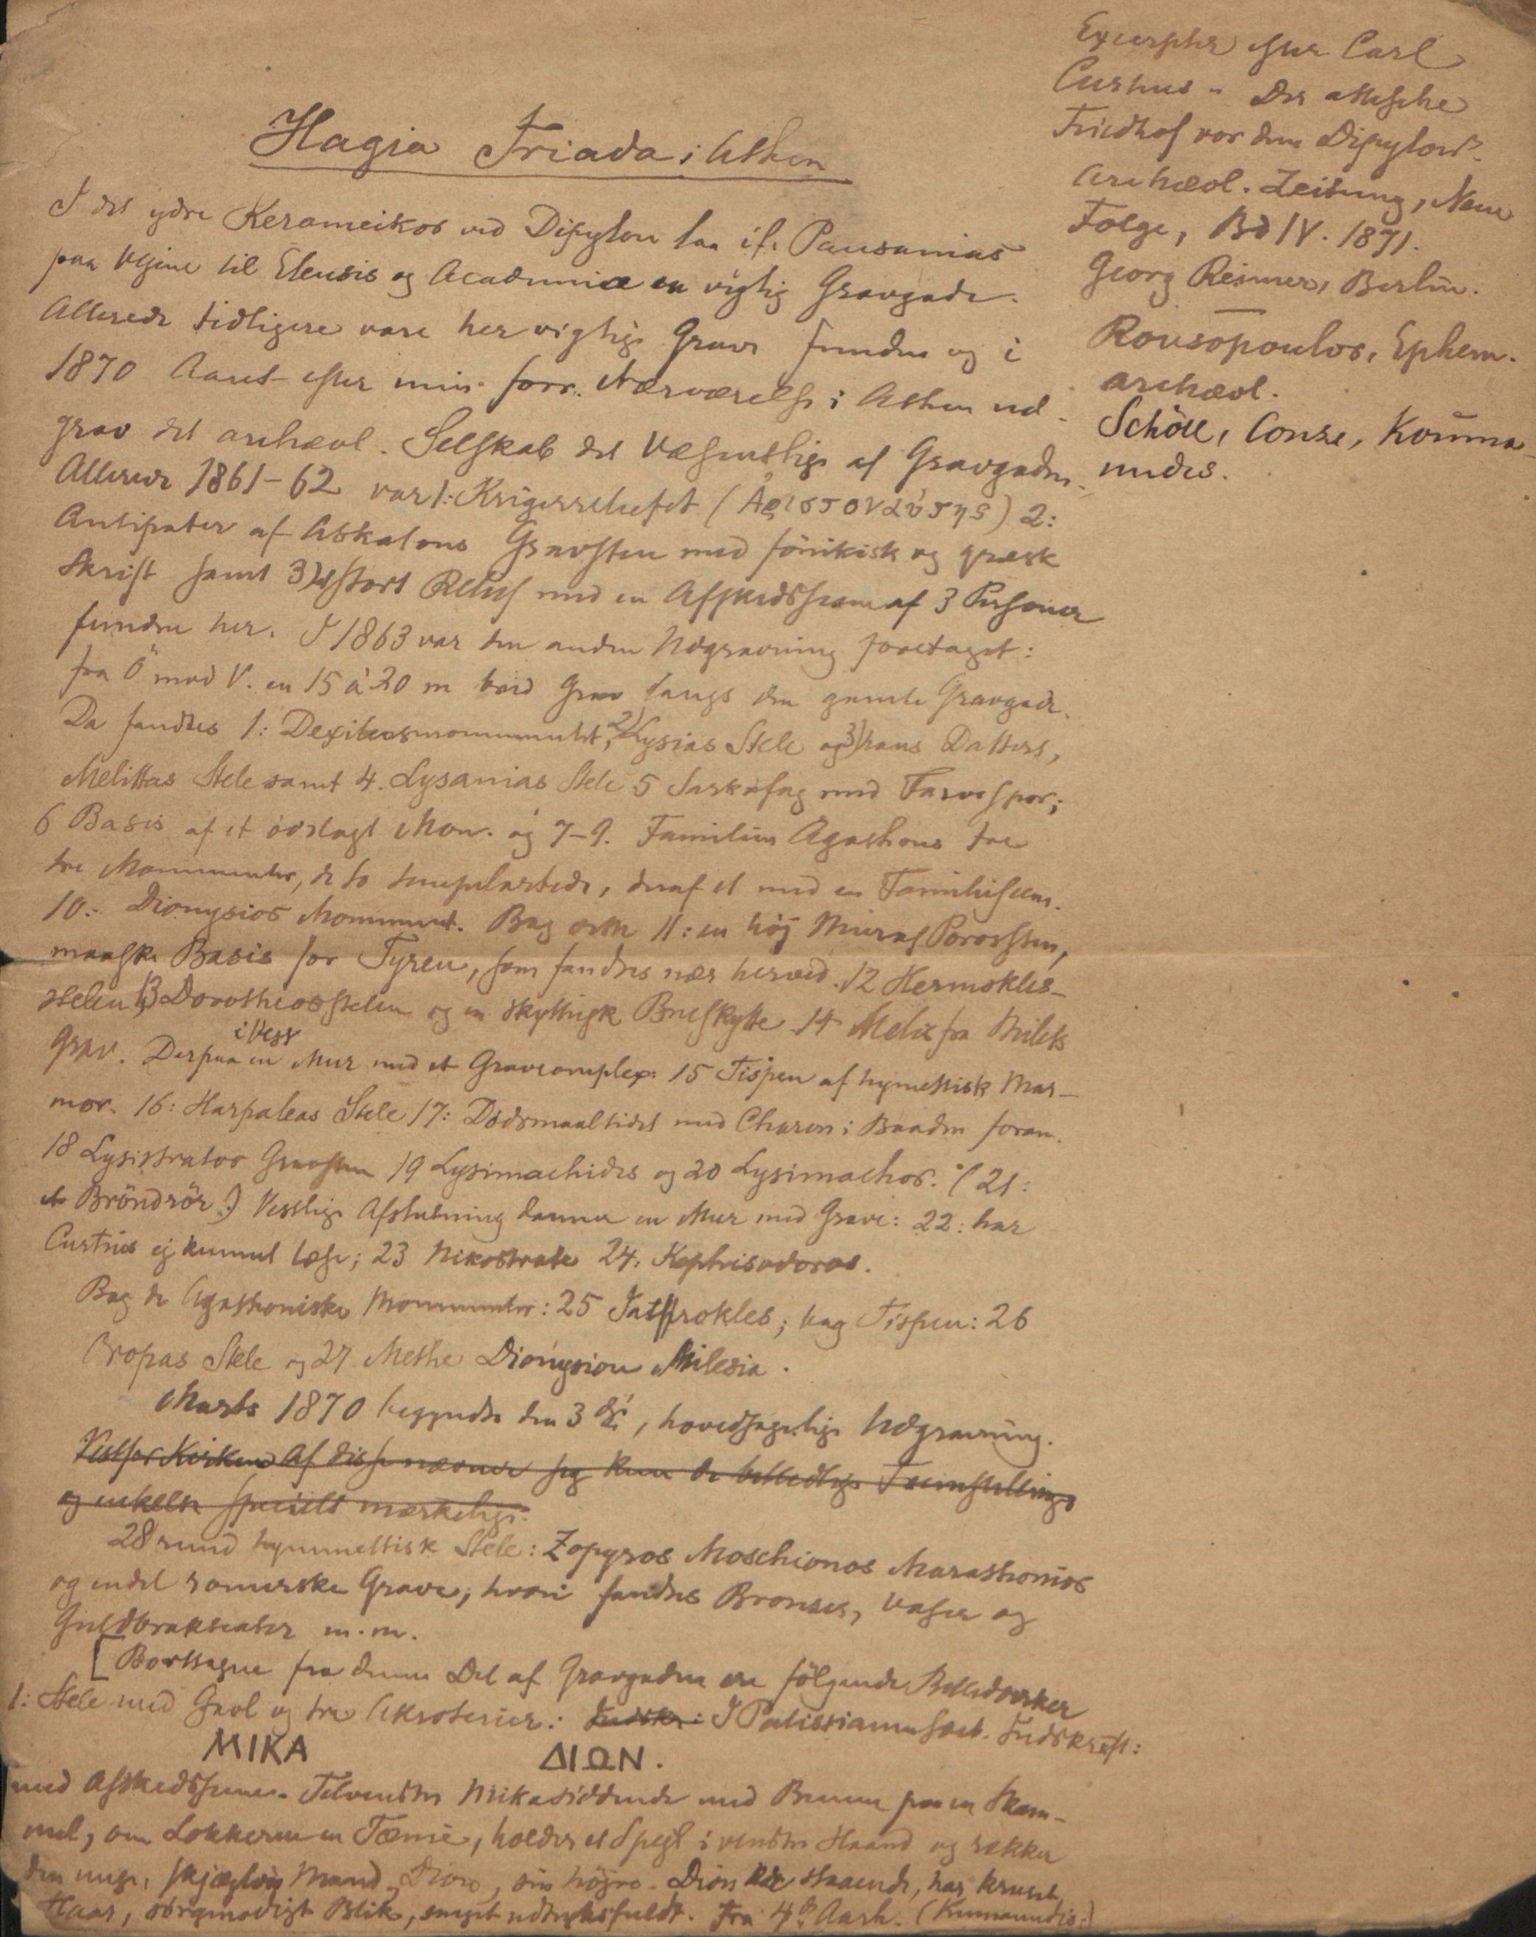 Hagia Triada i Athen
I det ydre Kerameikos ved Dipylon laa ifl. Pausanias
paa Vejene til Eleusis og Academiæ en vigtig Gravgade.
Allerede tidligere vare her vigtige Grave fundne og i
1870 Aaret efter min forr. Nærværelse i Athen ud-
grov det archæol. Selskab det Væsentlige af Gravgaden.
Allerede 1861-62 var 1: Krigerreliefet (Ἀριστοναύτης) 2:
Antipater af Askalons Gravsten med fönikisk og græsk
Skrift samt 3) et stort Relief med en Afskedsscene af 3 Personer
fundne her. I 1863 var den anden Udgravning foretaget:
fra Ö mod V. en 15 à 20 m bred Grav langs den gamle Gravgade.
Da fandtes 1: Dexileosmonumentet, 2) Lysias Stele og 3) hans Datters,
Melittas Stele samt 4. Lysanias Stele 5 Sarkofag med Farvespor;
6 Basis af et ödelagt Mon. og 7-9. Familien Agathons tre
tre Monumenter, de to tempelartede, deraf et med en Familiescene.
10: Dionysios Monument. Bag dette 11: en höj Mur af Porossten,
maaske Basis for Tyren, som fandtes nær herved. 12 Hermokles-
stelen, 13 Dorotheosstelen og en skythisk Bueskytte 14 Melix fra Milets
Grav. Derpaa i Vest en Mur med et Gravcomplex. 15 Tispen af hymettisk Mar-
mor. 16: Harpaleas Stele 17: Dödsmaaltidet med Charon i Baaden foran.
18 Lysistratos Gravsten 19 Lysimachides og 20 Lysimachos. (21:
et Bröndrör.) Vestlige Afslutning danner en Mur med Grave: 22: har
Curtius ej kunnet læse; 23 Nikostrate 24. Kephisodoros.
Bag de Agathoniske Monumenter: 25 Jatrokles; bag Tispen: 26
Oropas Stele og 27 Methe Dionysiou Milesia.
Marts 1870 begyndte den 3die, hovedsagelige Udgravning.
Vest for Kirken Af disse nævner jeg kun de billedlige Fremstillinger
og enkelte specielt mærkelige.
28 rund hymettisk Stele: Zopyros Moschionos Marathonios
og endel romerske Grave, hvori fandtes Bronzer, Vaser og
Guldbrakteater m.m.
[Borttagne fra denne Del af Gravgaden ere fölgende Billedværker
1: Stele med Gavl og tre Akroterier: Indskr: I Patissiamuseet. Indskrift:
ΜΙΚΑ ΔΙΩΝ.
med Afskedsscene. Tilvenstre Mika siddende med Benene paa en Skam-
mel, om Lokkerne en Tænie, holder et Spejl i venstre Haand og rækker
den unge, skjæglöse Mand, Dion, sin höjre. Dion er staaende, har kruset
Haar, sörgmodigt Blik, meget udtryksfuldt. Fra 4de Aarh. (Kumanudis.)
Excerpter efter Carl
Curtius - Der attische
Friedhof vor dem Dipylon".
Archæol. Zeitung, Neue
Folge, Bd IV. 1871.
Georg Reimer, Berlin.
Rousopoulos, Ephem.
archæol.
Schöll, Conze, Kouma-
nudes.